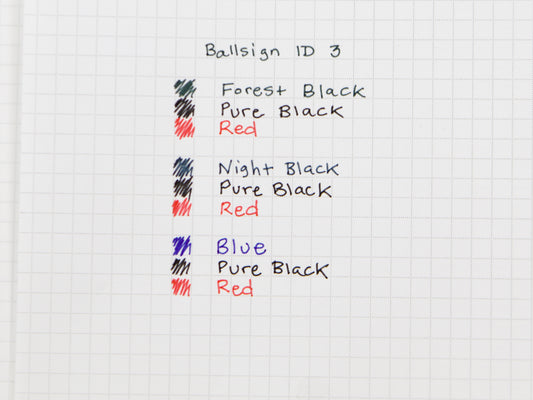 Ballsign ID 3
Forest Black
Pure Black
Red
Night Black
Pure Black
Red
Blue
Pure Black
Red